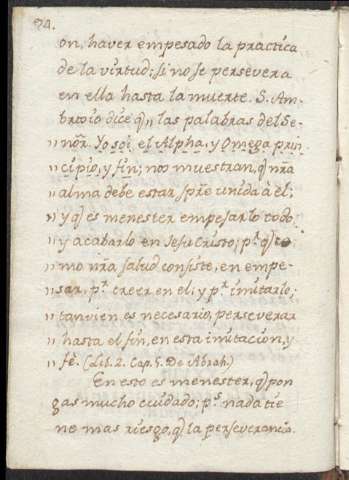 74.
on, haver empesado la practica
de la virtud; si no se persevera
en ella hasta la muerte. S. Am-
brosio dice q̃ ,, las palabras del Se-
,, ñor: Yo soi el Alpha, y Omega prin
,, cipio, y fin; nos muestran, q̃ nr̃a
,, alma debe estar spr̃e unida à èl;
,, y q̃ es menester empesarlo todo
,, y acabarlo en Jesu Cristo; p.ª q̃ co
,, mo nr̃a salud consiste, en empe-
,, sar, p.ª creer en el; y p.ª imitarlo;
,, tanvien, es necesario, perseverar
,, hasta el fin, en esta imitacion, y
,, fè. (Lib. 2. Cap. 5. De Abrah.)
En esto es menester, q̃ pon
gas mucho cuidado; p.s nada tie
ne mas riesgo, q̃ la perseverancia.